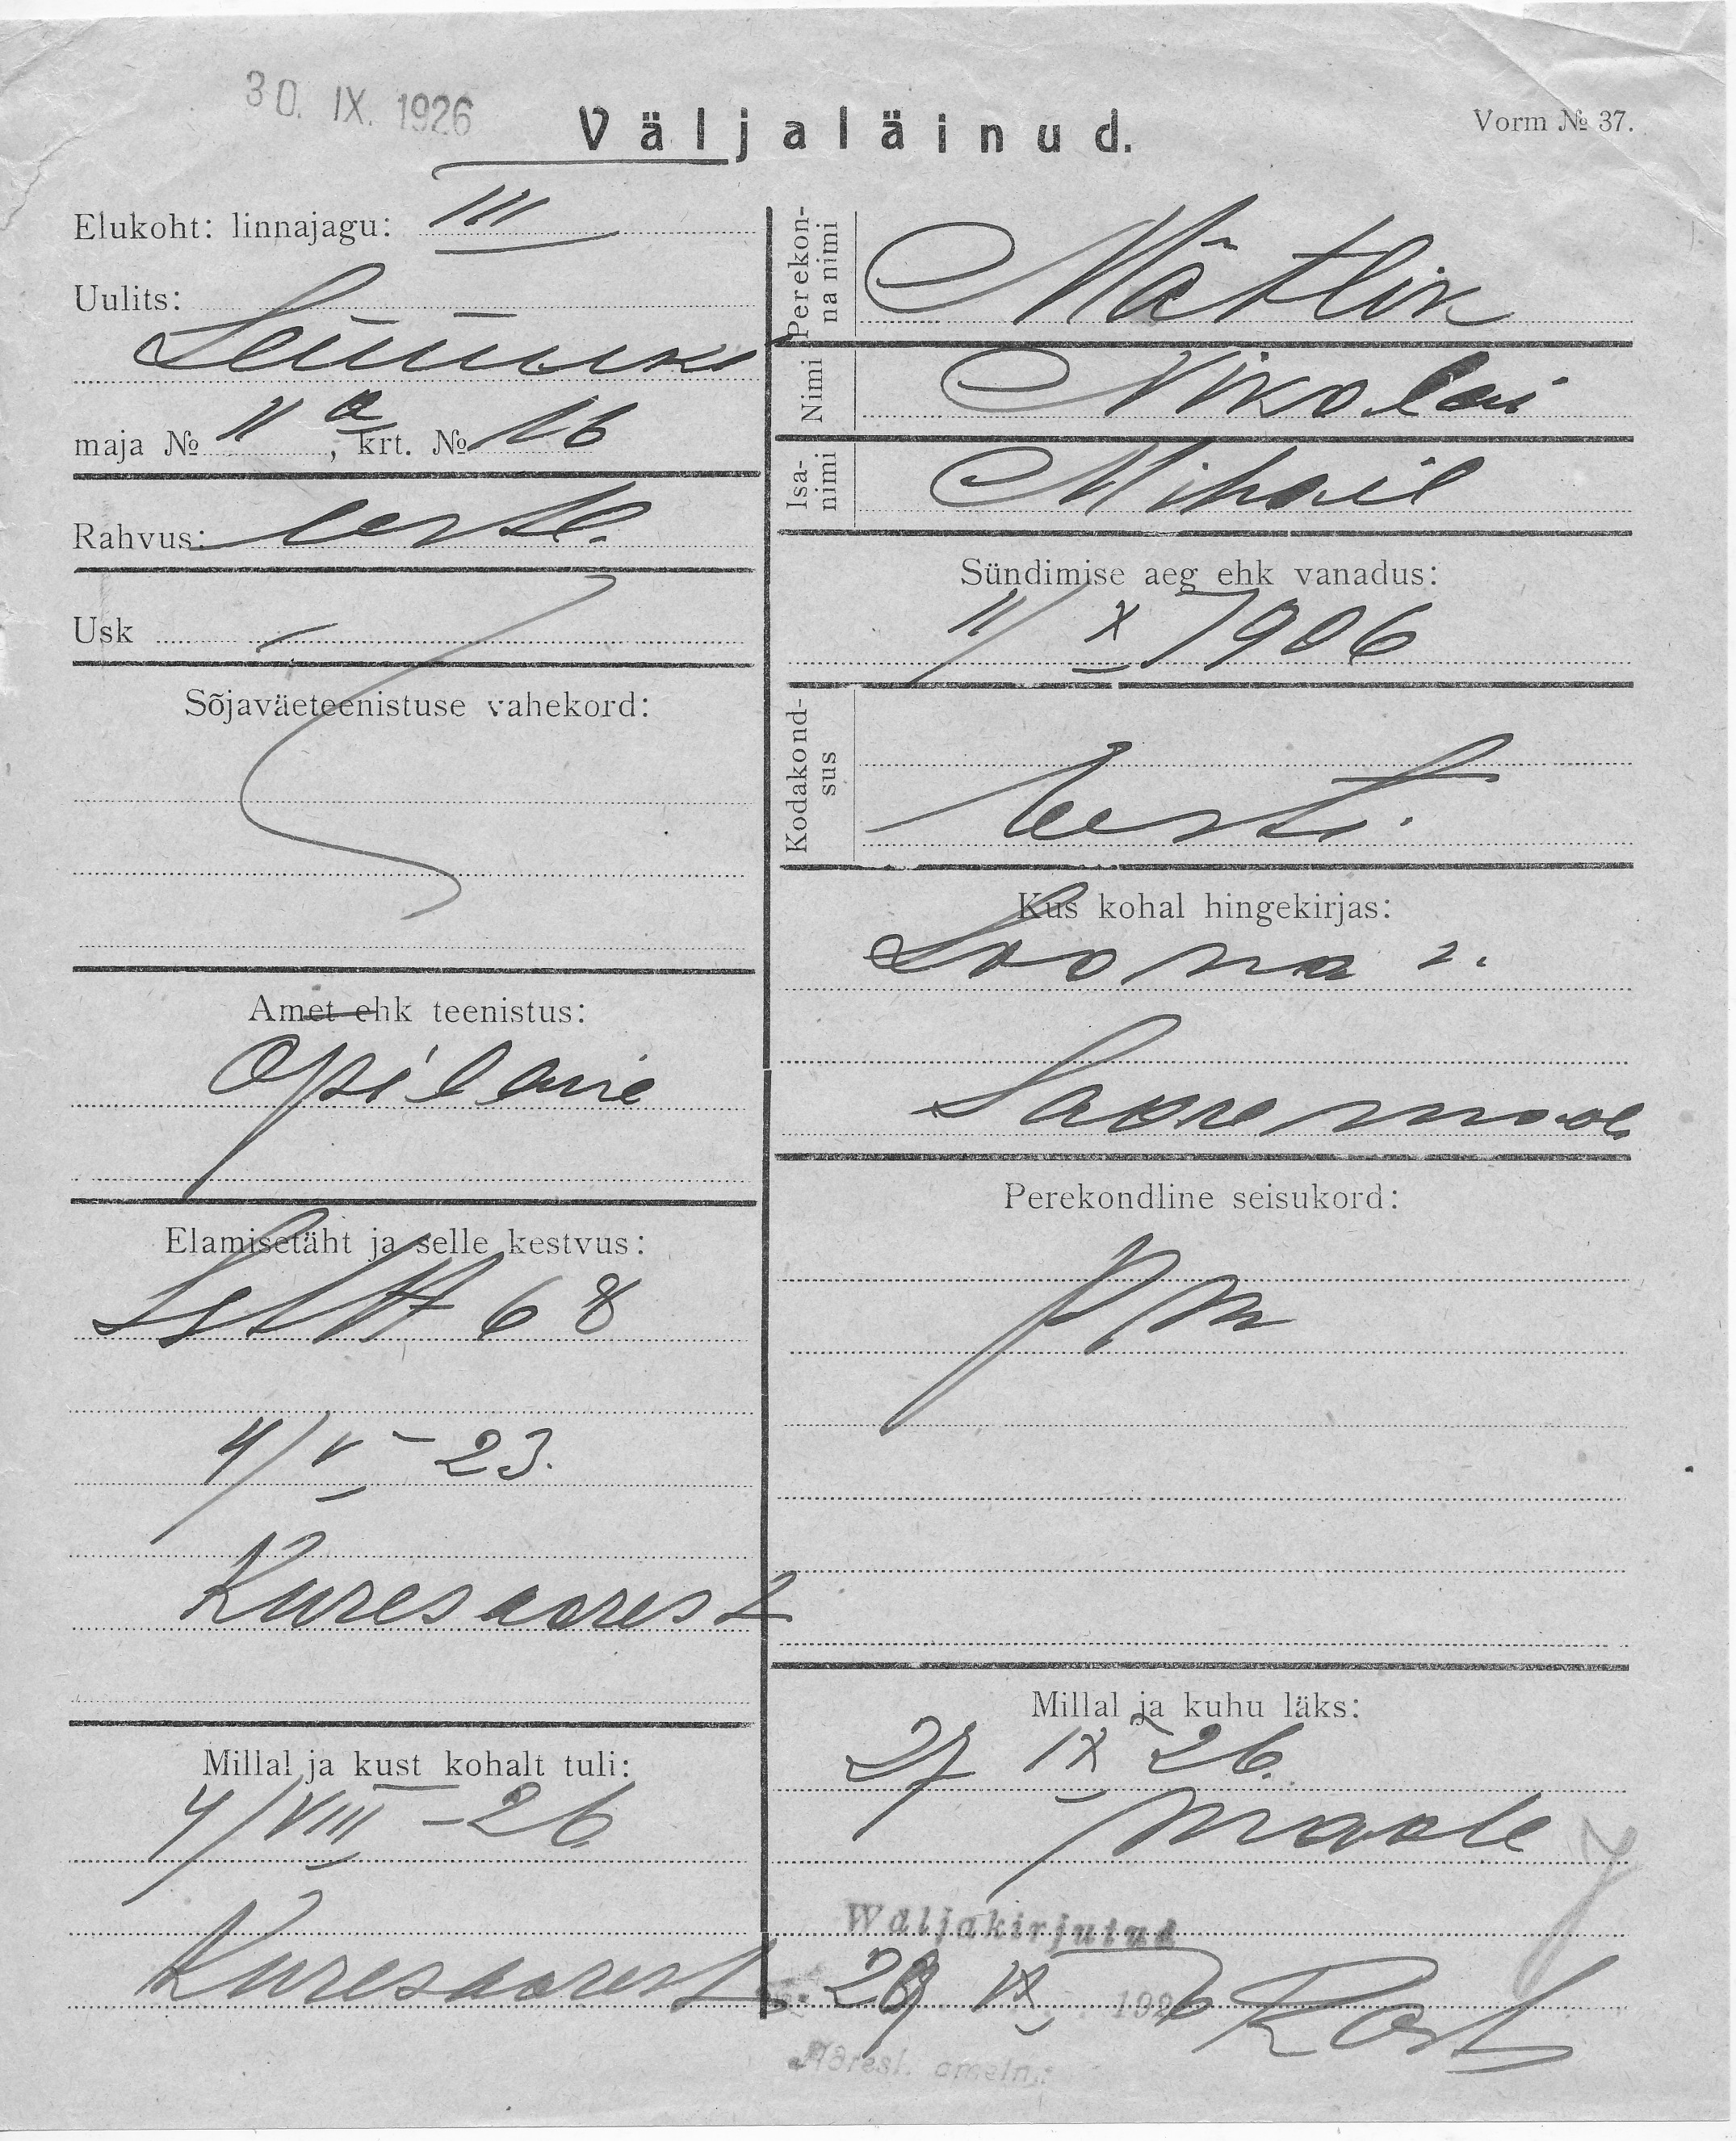 30. IX. 1926
Väljaläinud.
Vorm № 37.
Elukoht: linnajagu: III
Uulits:
maja № 11 a, krt. № 16
Rahvus: eestl.
Usk —
Sõjaväeteenistuse vahekord:
Amet ehk teenistus:
Opilane
Elamisetäht ja selle kestvus:
68
4/V – 23.
Kuresaarest
Millal ja kust kohalt tuli:
4/VIII – 26.
Kuresaarest
Perekonna nimi Mätlik
Nimi Nikolai
Isanimi Mihail
Sündimise aeg ehk vanadus:
11/X 1906
Kodakondsus
Eesti.
Kus kohal hingekirjas:
Loona v.
Saaremaal
Perekondline seisukord:
Millal ja kuhu läks:
27 IX 26.
maale
Wäljakirjutud
29 IX 1926
Adresl. ametn.: